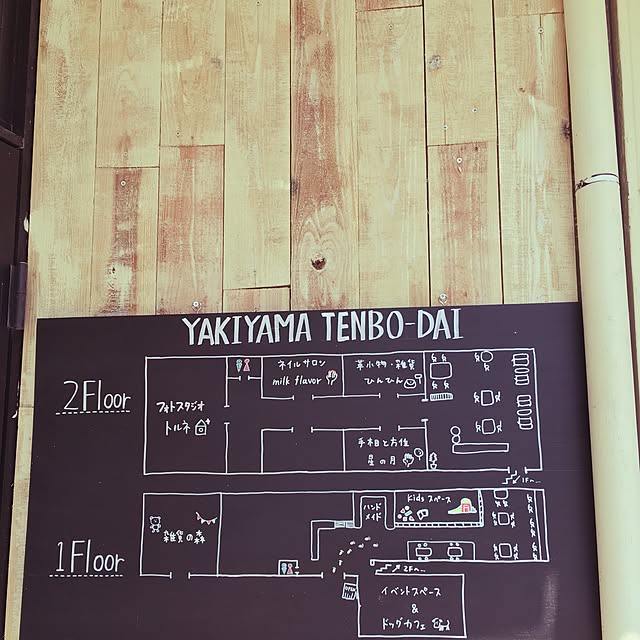 YAKIYAMA TENBO-DAI
2Floor
フォトスタジオ
トルネ
ネイルサロン
milk flavor
革小物・雑貨
ひんひん
手相と方位
星の月
1F へ
1Floor
雑貨の森
ハンド
メイド
Kids スペース
2F へ
イベントスペース
&
ドッグカフェ